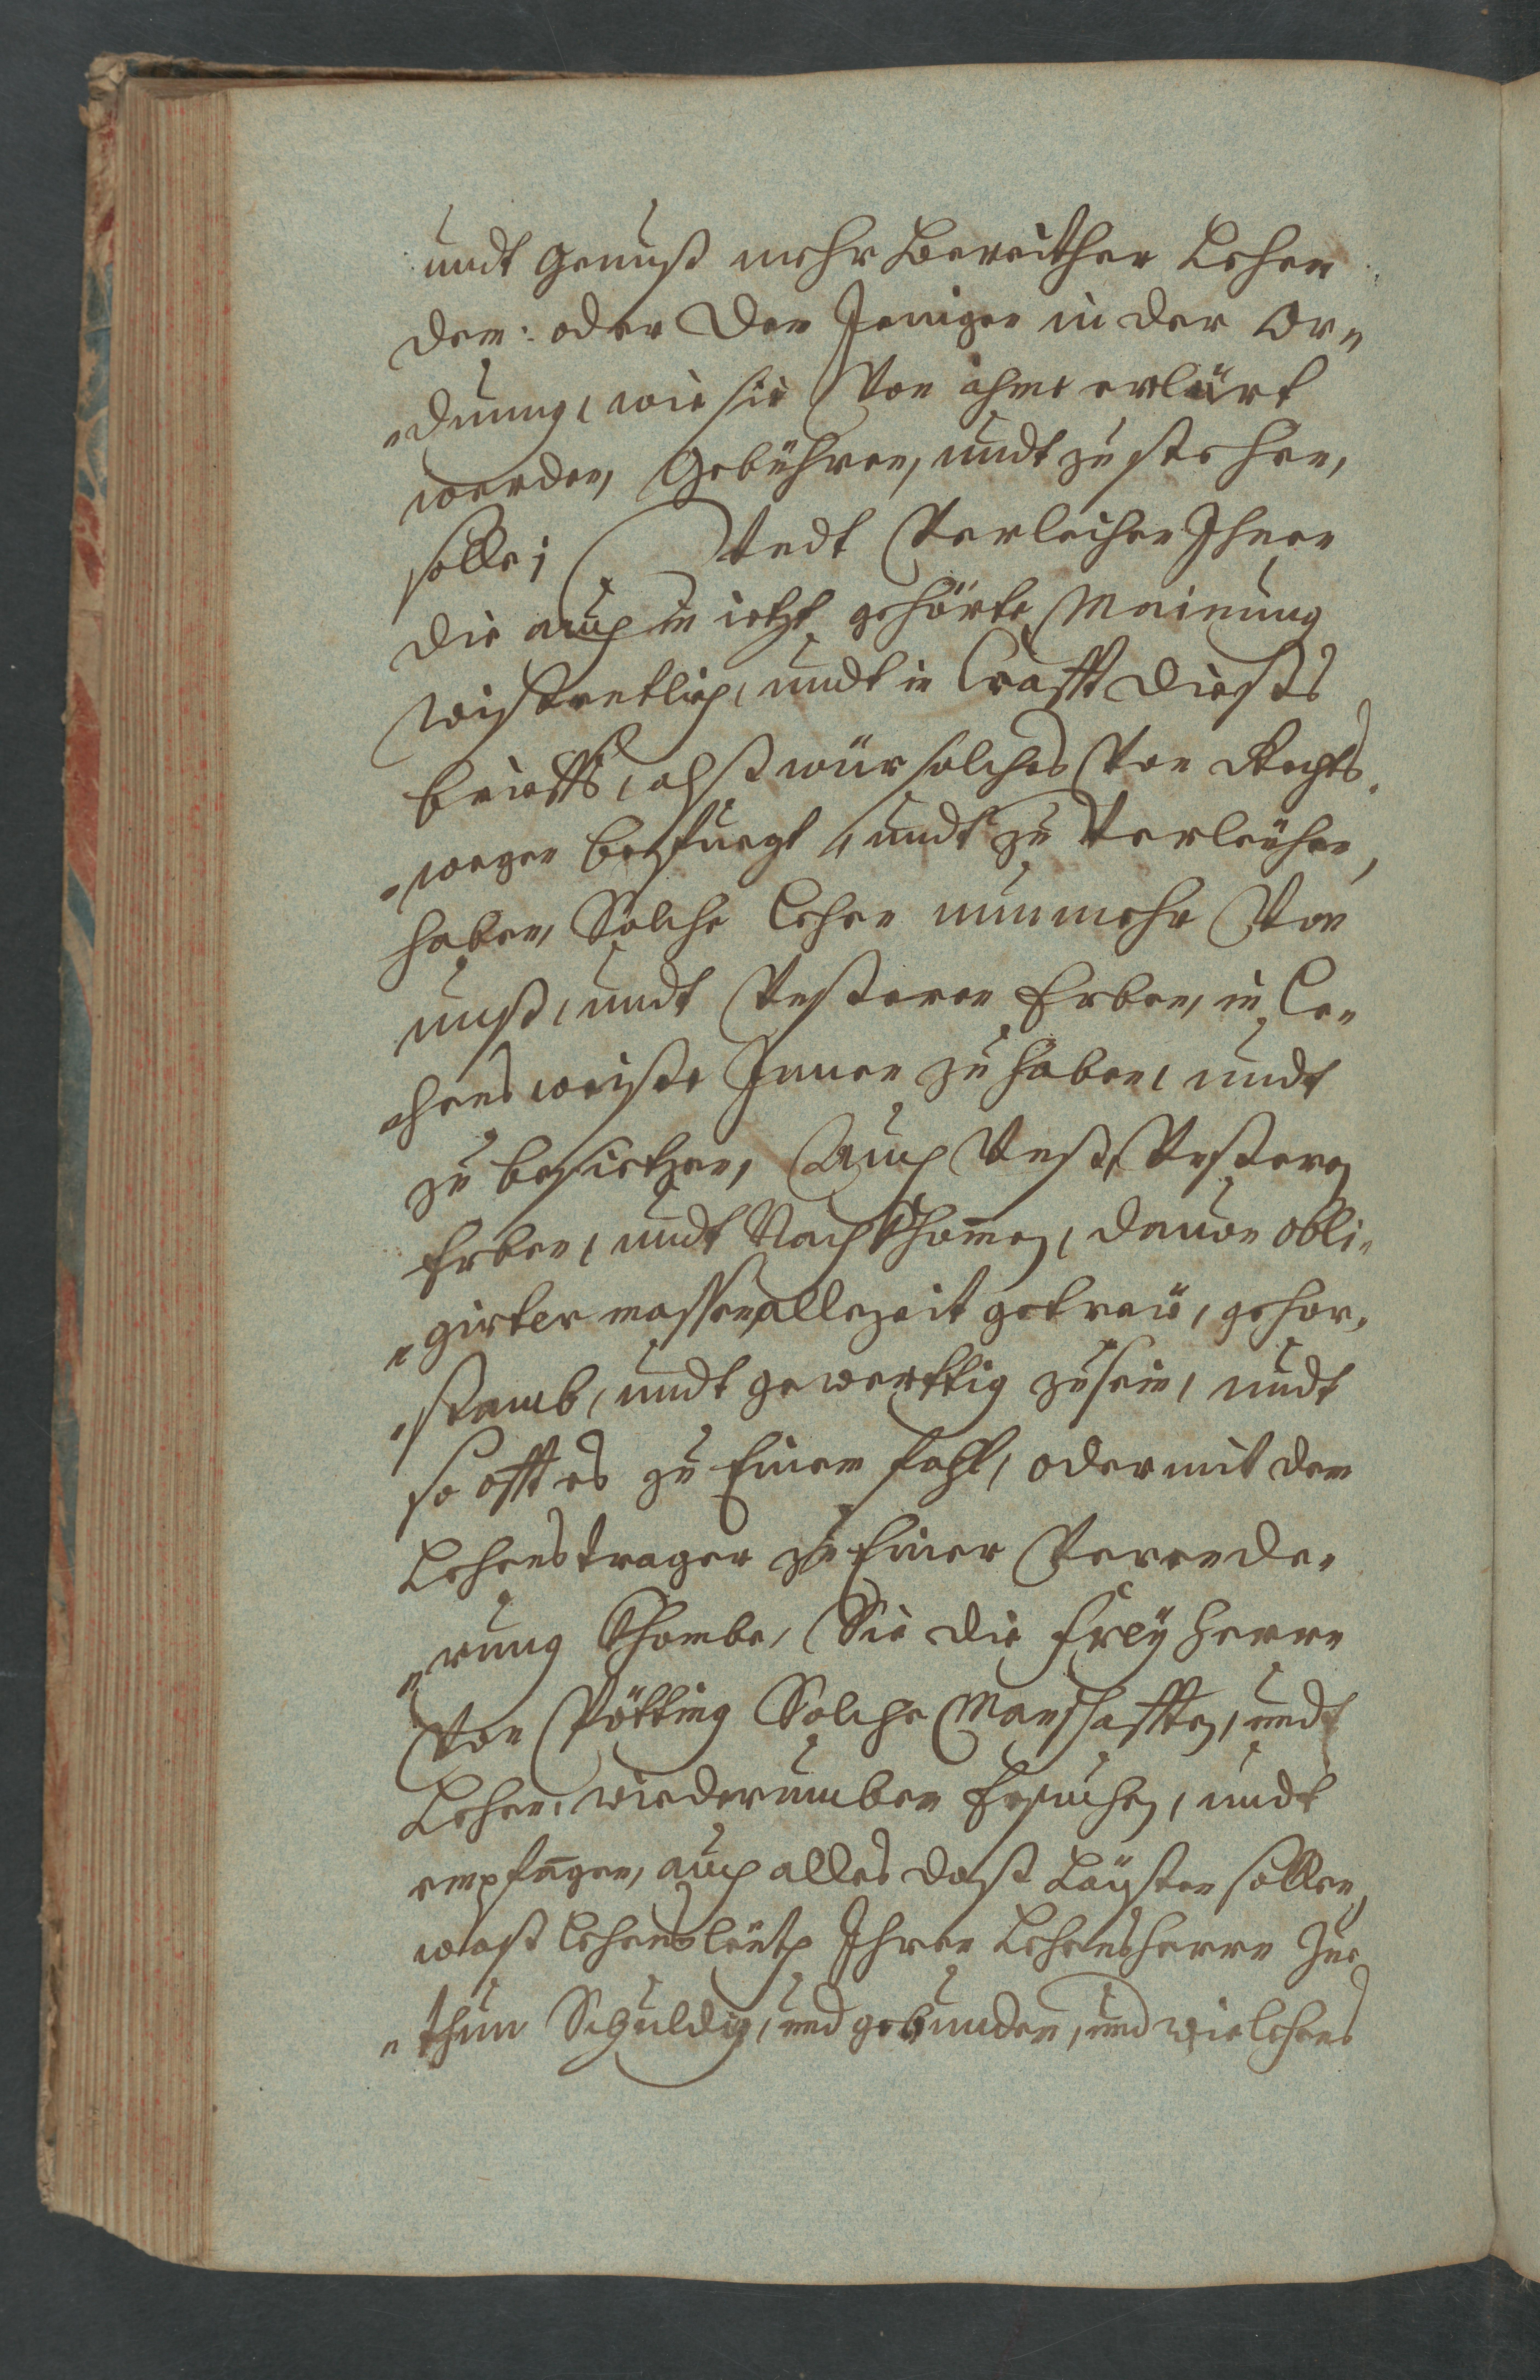 undt genuß mehr Bereither Lehen
dem: oder den Jenigen in der Or„
„dnung, wie sie Von ihme erklärt
werden, Gebühren, undt zuestehen,
solle; Vndt Verleihen Ihnen
die auch in ietzt gehörte Meinung
Wissentlich, undt in Crafft dieses
brieffs, alß wür solches Von Rechts„
„wegen befuegt, undt zu Verleihen,
haben, Solche Lehen nunmehr Von
unß, undt Vnßeren Erben, in Le„
„hensweiße Innen zu haben, undt
zu besietzen, Auch Vnß, Vnßeren
Erben, undt Nachkhommen, dauon obli„
„girter massen, allezeit getreü, gehor„
„samb, undt gewerttig zu sein, undt
so offt es zu Einem fahl, oder mit dem
Lehenstrager zu Einer Verende„
„rung Khombe, Sie die Freyherrn
Von Pötting Solche Manschafften, undt
Lehen, wiederumben Ersuchen, undt
empfangen, auch alles daß Laisten sollen,
waß Lehensleüth Ihren Lehensherrn Zue„
„thun Schuldig, und gebunden, und wie Lehens